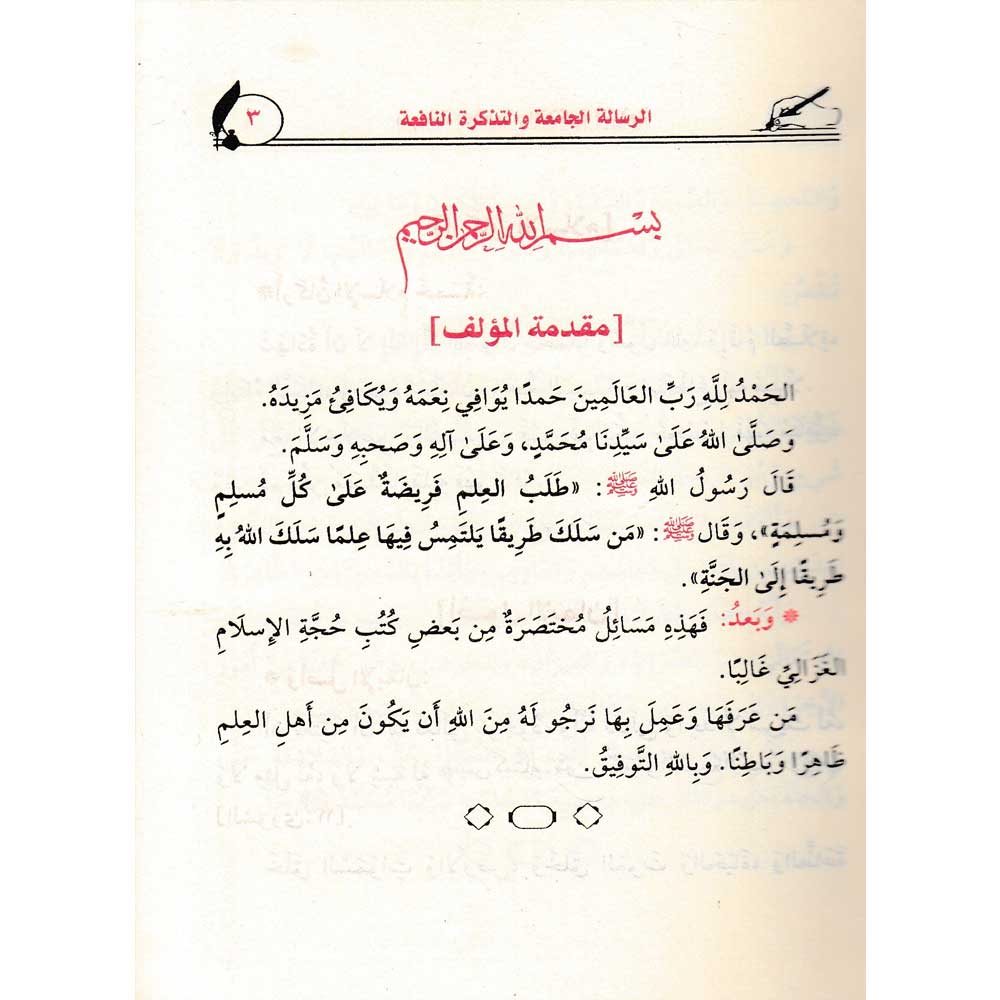 الرسالة الجامعة والتذكرة النافعة
٣
بسم الله الرحمن الرحيم
[مقدمة المؤلف]
الحَمْدُ لِلَّهِ رَبِّ العَالَمِينَ حَمدًا يُوَافِي نِعَمَهُ وَيُكَافِئُ مَزِيدَهُ.
وَصَلَّىٰ اللهُ عَلَىٰ سَيِّدِنَا مُحَمَّدٍ، وَعَلَىٰ آلِهِ وَصَحبِهِ وَسَلَّمَ.
قَالَ رَسُولُ اللهِ ﷺ: «طَلَبُ العِلمِ فَرِيضَةٌ عَلَىٰ كُلِّ مُسلِمٍ
وَمُسلِمَةٍ»، وَقَال ﷺ: «مَن سَلَكَ طَرِيقًا يَلتَمِسُ فِيهَا عِلمًا سَلَكَ اللهُ بِهِ
طَرِيقًا إِلَىٰ الجَنَّةِ».
* وَبَعدُ: فَهَذِهِ مَسَائِلُ مُختَصَرَةٌ مِن بَعضِ كُتُبِ حُجَّةِ الإِسلَامِ
الغَزَالِيِّ غَالِبًا.
مَن عَرَفَهَا وَعَمِلَ بِهَا نَرجُو لَهُ مِنَ اللهِ أَن يَكُونَ مِن أَهلِ العِلمِ
ظَاهِرًا وَبَاطِنًا. وَبِاللهِ التَّوفِيقُ.